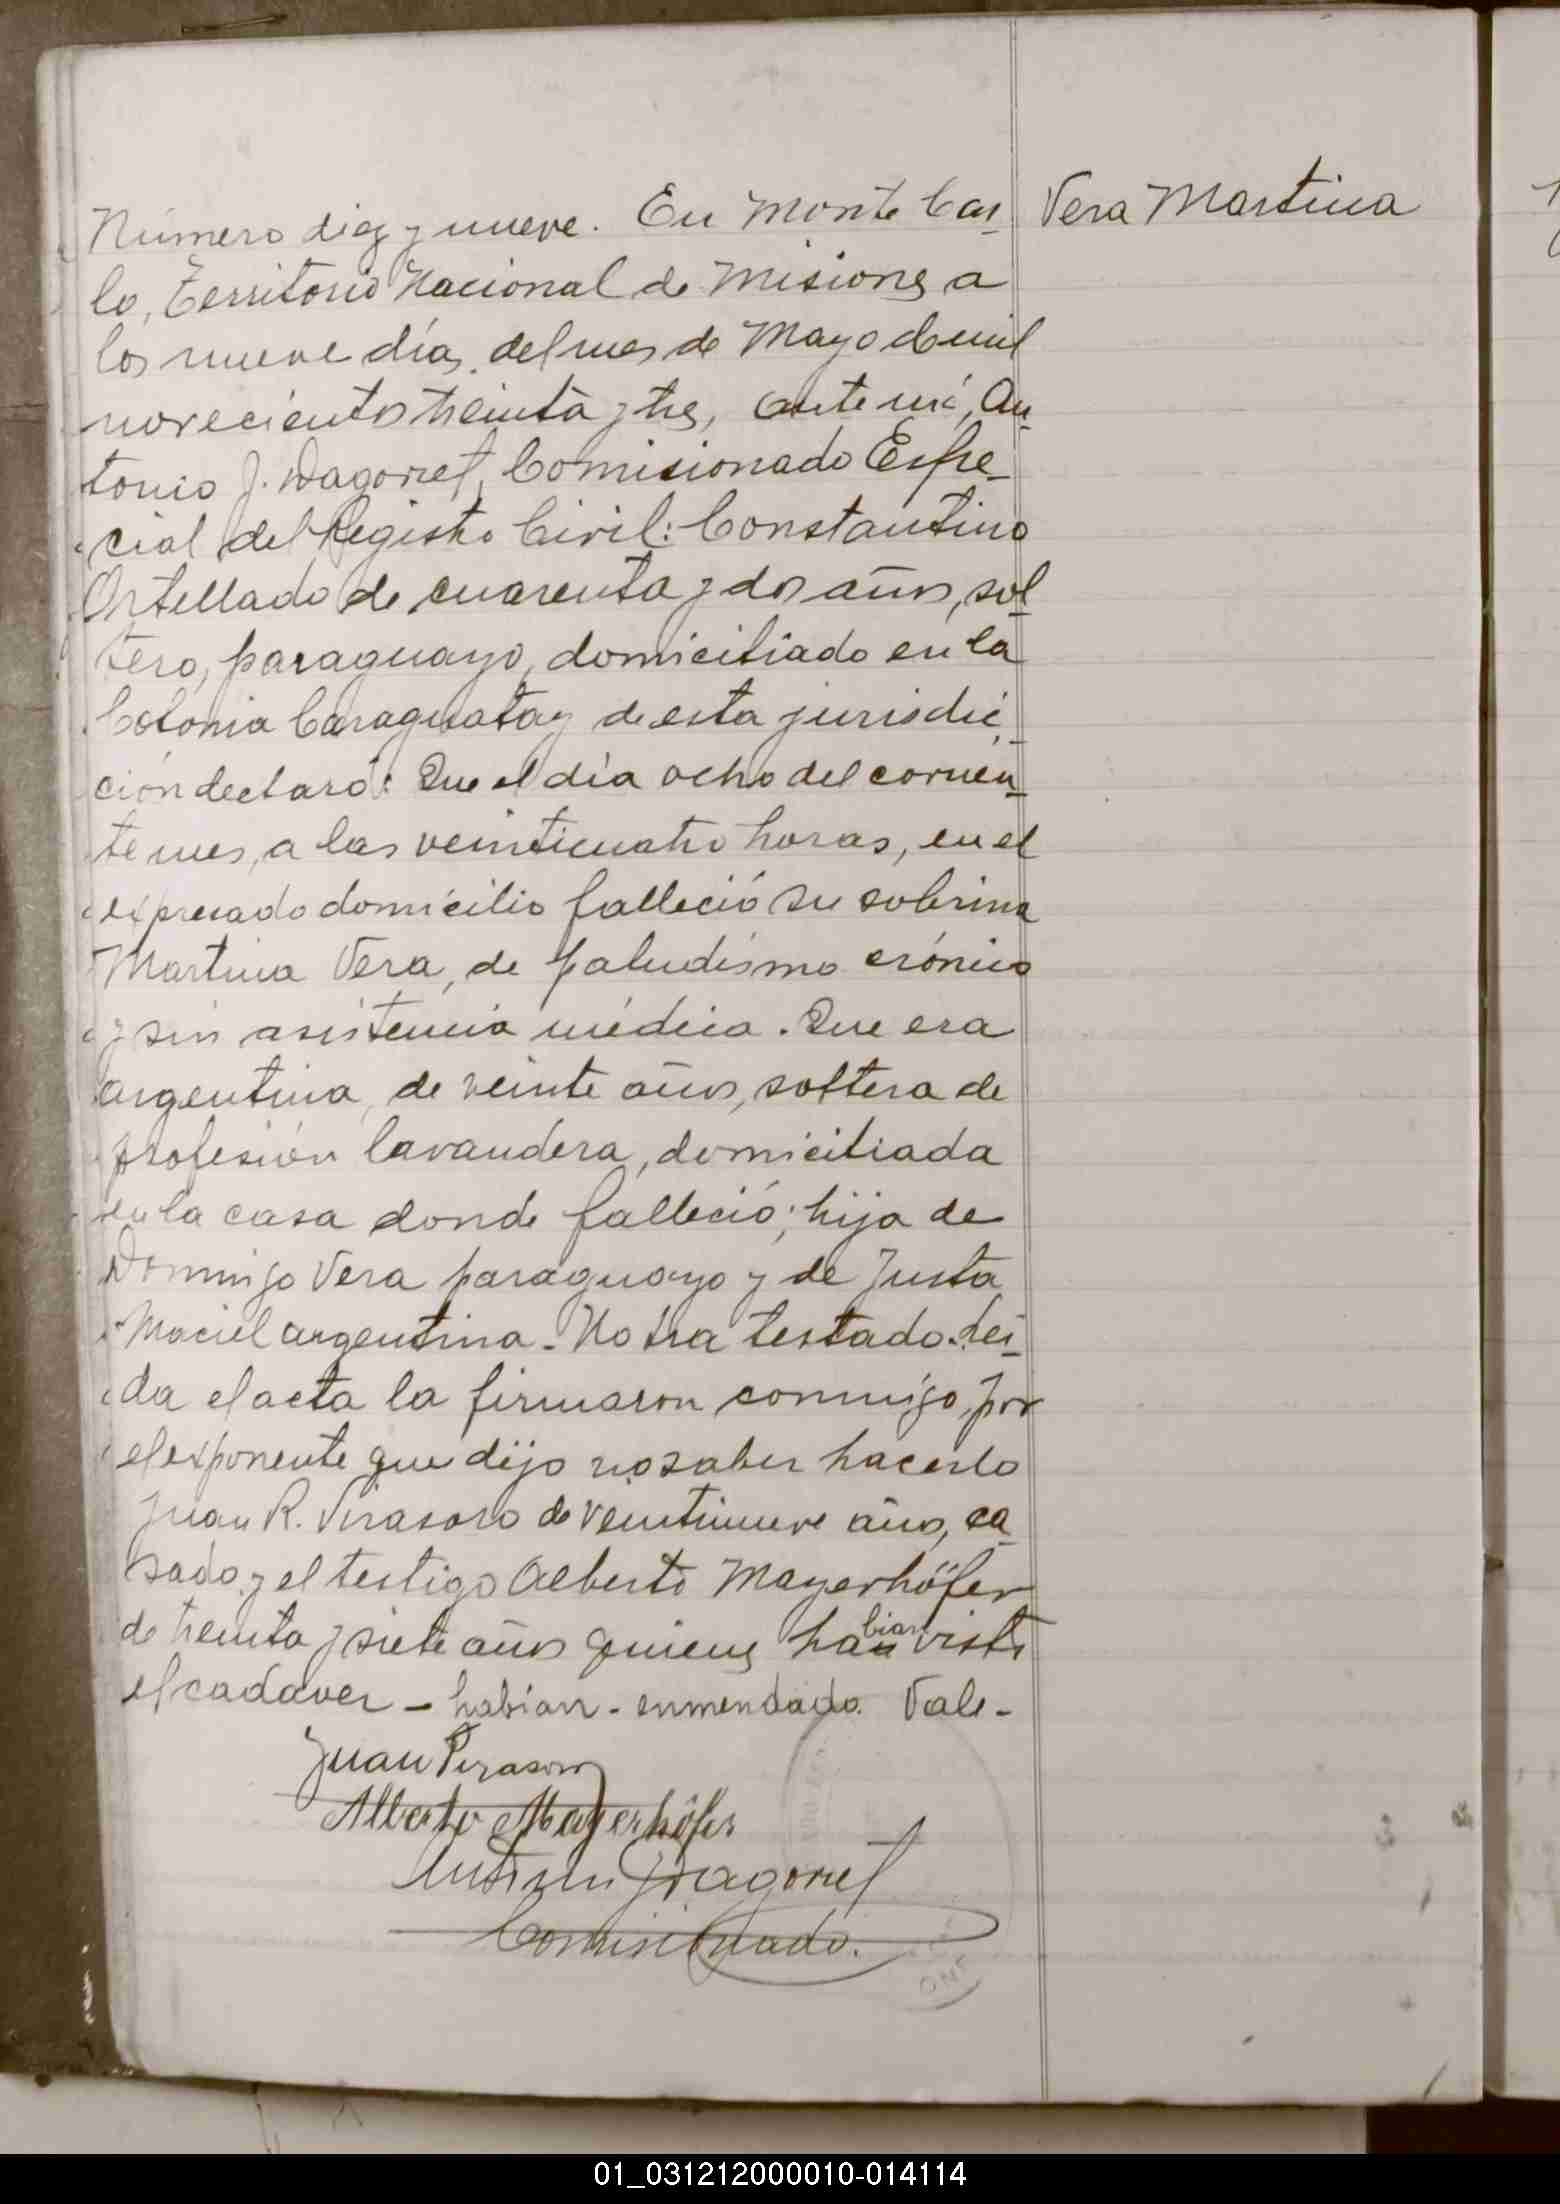 Número diez y nueve. En Monte Car-
lo, Territorio Nacional de Misiones a
los nueve días del mes de Mayo de mil
novecientos treinta y tres, ante mí, An-
tonio J. Dagorret, Comisionado Espe-
cial del Registro Civil: Constantino
Ortellado de cuarenta y dos años, sol-
tero, paraguayo, domiciliado en la
Colonia Caraguatay de esta jurisdic-
ción declaró: Que el día ocho del corrien-
te mes, a las veinticuatro horas, en el
expresado domicilio falleció su sobrina
Martina Vera, de paludismo crónico
y sin asistencia médica. Que era
argentina, de veinte años, soltera de
profesión lavandera, domiciliada
en la casa donde falleció; hija de
Domingo Vera paraguayo y de Justa
Maciel argentina - No ha testado. Leí-
da el acta la firmaron conmigo, por
el exponente que dijo no saber hacerlo
Juan R. Virasoro de veintinueve años, ca-
sado y el testigo Alberto Mayerhöfer
de treinta y siete años quienes habian visto
el cadaver - habían - enmendado. Vale -
Juan Virasoro
Alberto Mayerhöfer
Antonio J Dagorret
Comisionado.
Vera Martina
01_031212000010-014114